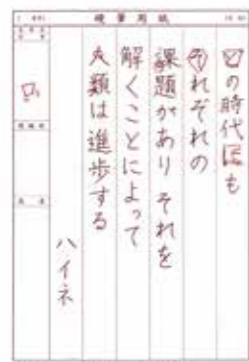 硬筆用紙
の時代にも
それぞれの
課題があり それを
解くことによって
人類は進歩する
ハイネ